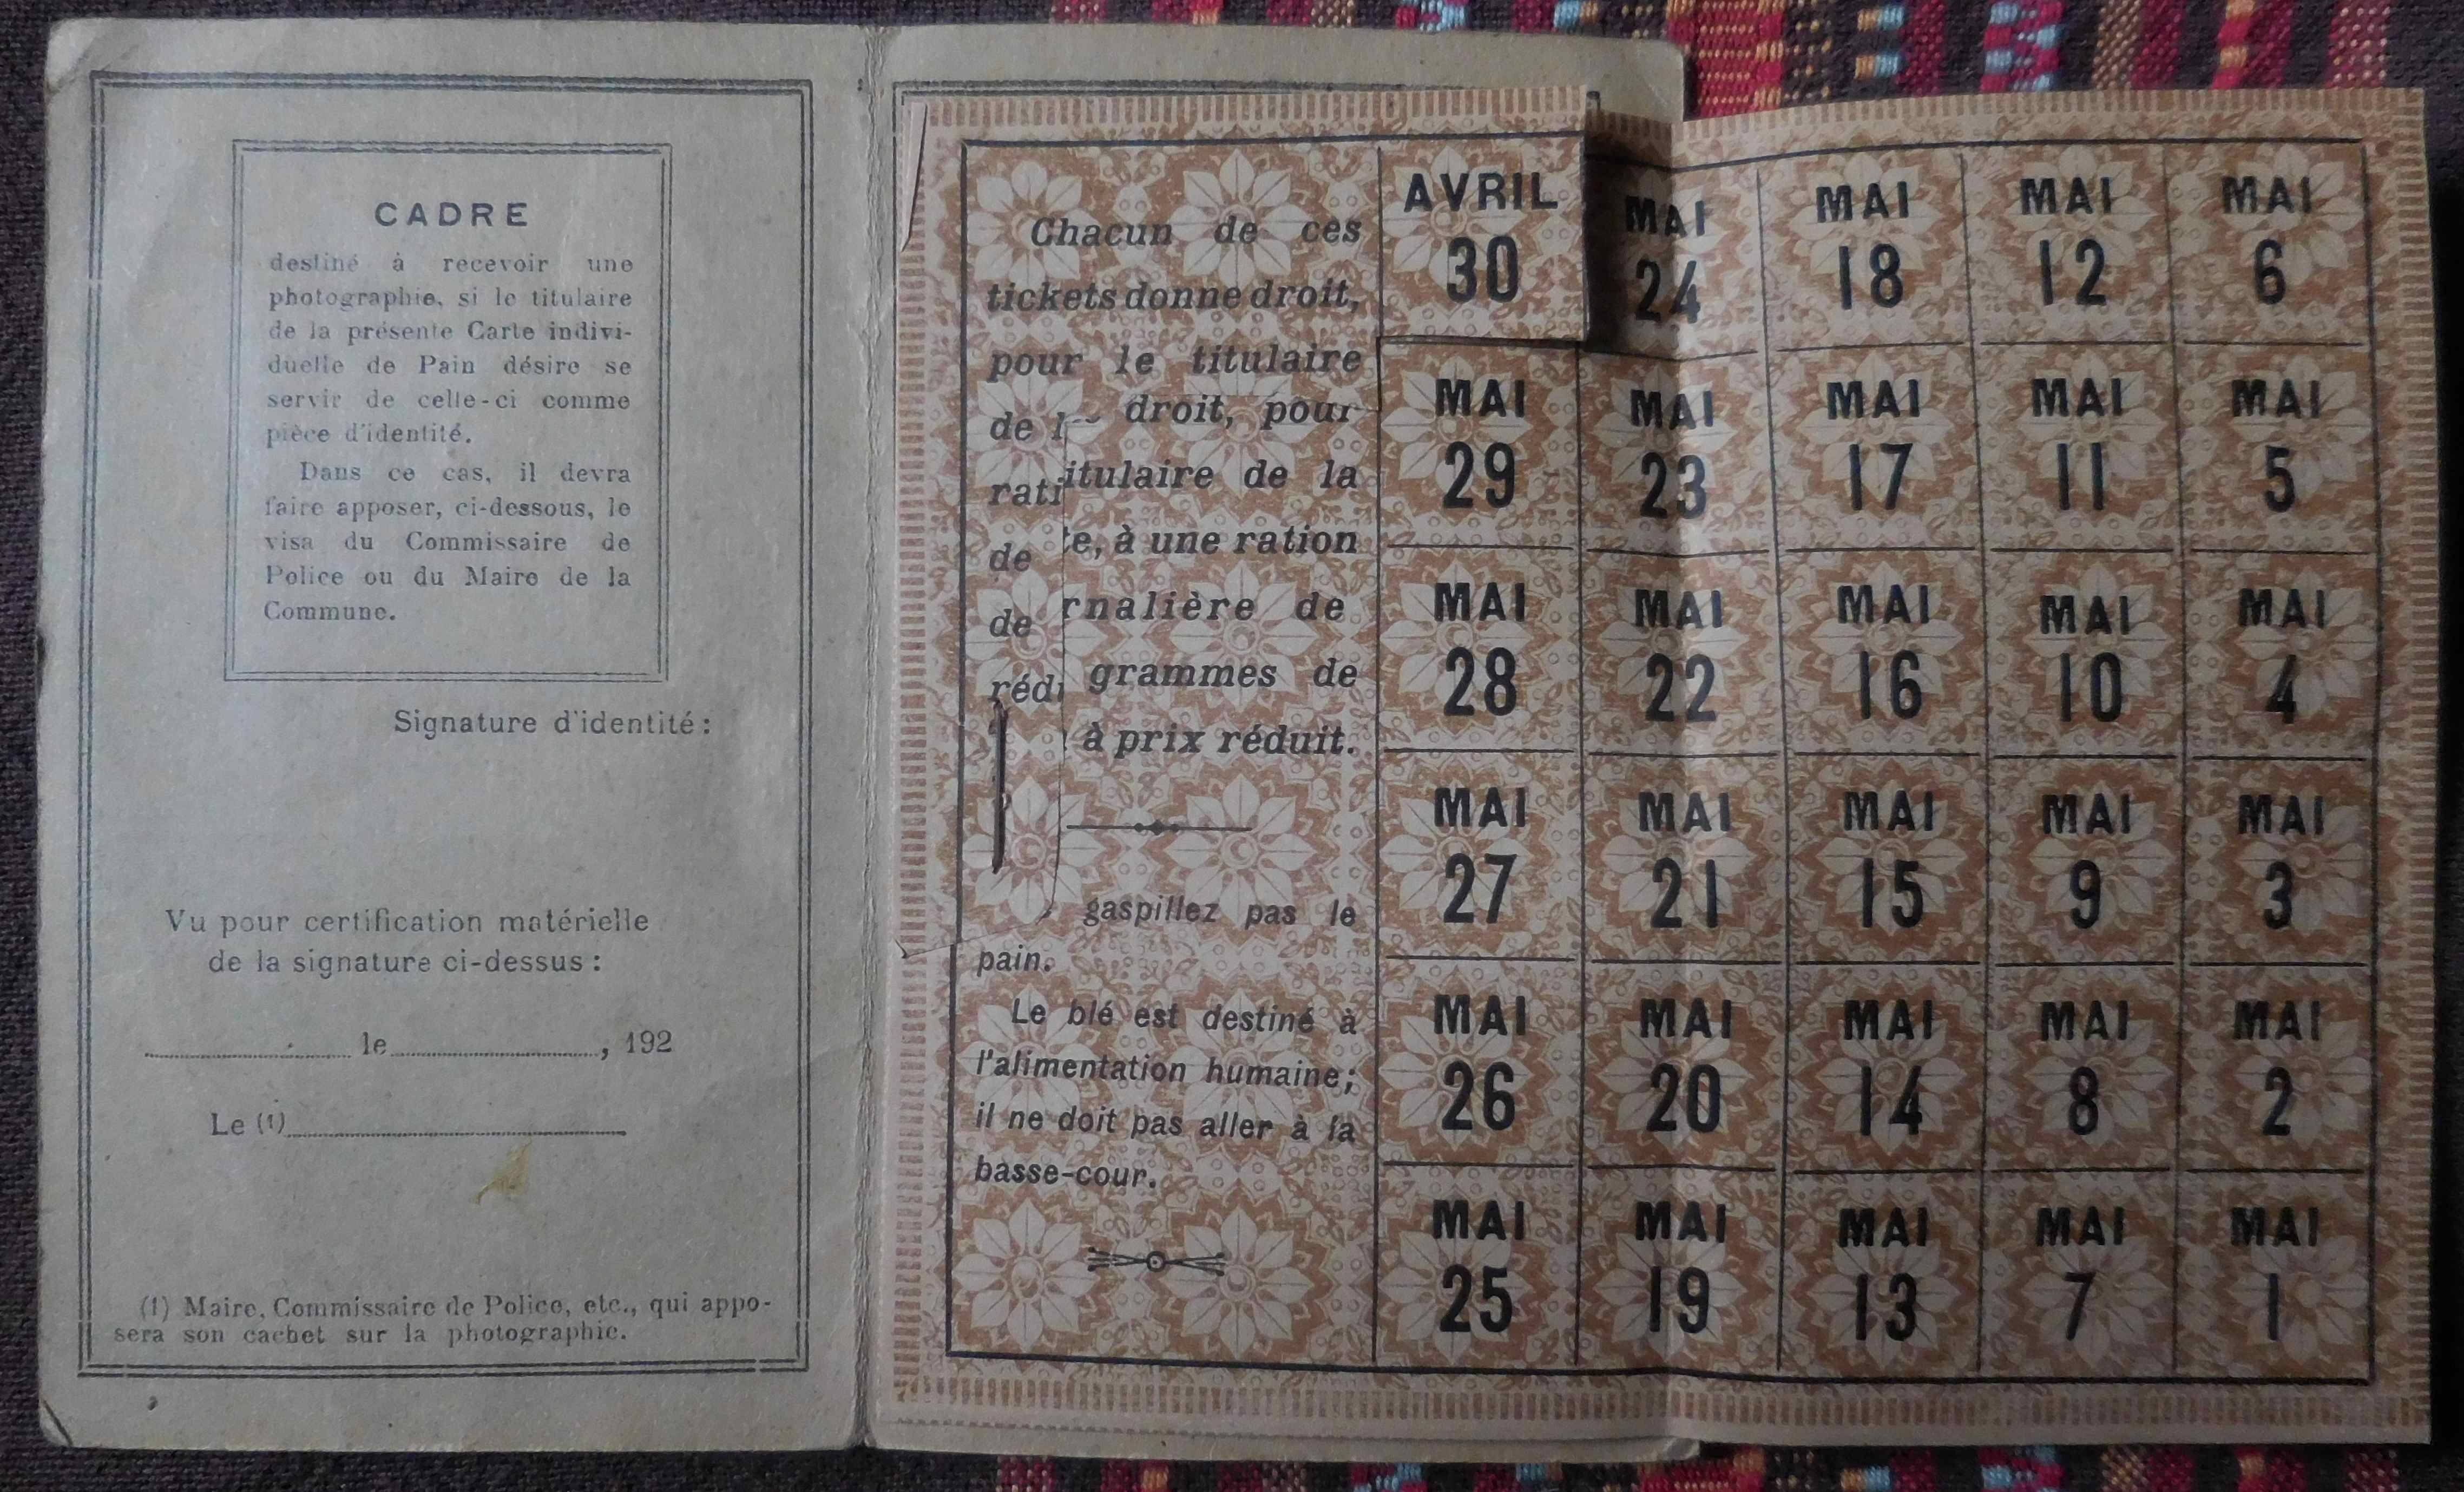 CADRE
destiné à recevoir une
photographie, si le titulaire
de la présente Carte indivi-
duelle de Pain désire se
servir de celle-ci comme
pièce d'identité.
Dans ce cas, il devra
faire apposer, ci-dessous, le
visa du Commissaire de
Police ou du Maire de la
Commune.
Signature d'identité :
Vu pour certification matérielle
de la signature ci-dessus :
le , 192
Le (1)
(1) Maire, Commissaire de Police, etc., qui appo-
sera son cachet sur la photographie.
Chacun de ces
tickets donne droit,
pour le titulaire
de droit, pour
rati itulaire de la
de e, à une ration
de rnalière de
rédi grammes de
à prix réduit.
gaspillez pas le
pain.
Le blé est destiné à
l'alimentation humaine;
il ne doit pas aller à la
basse-cour.
AVRIL MAI MAI MAI MAI
30 24 18 12 6
MAI MAI MAI MAI MAI
29 23 17 11 5
MAI MAI MAI MAI MAI
28 22 16 10 4
MAI MAI MAI MAI MAI
27 21 15 9 3
MAI MAI MAI MAI MAI
26 20 14 8 2
MAI MAI MAI MAI MAI
25 19 13 7 1